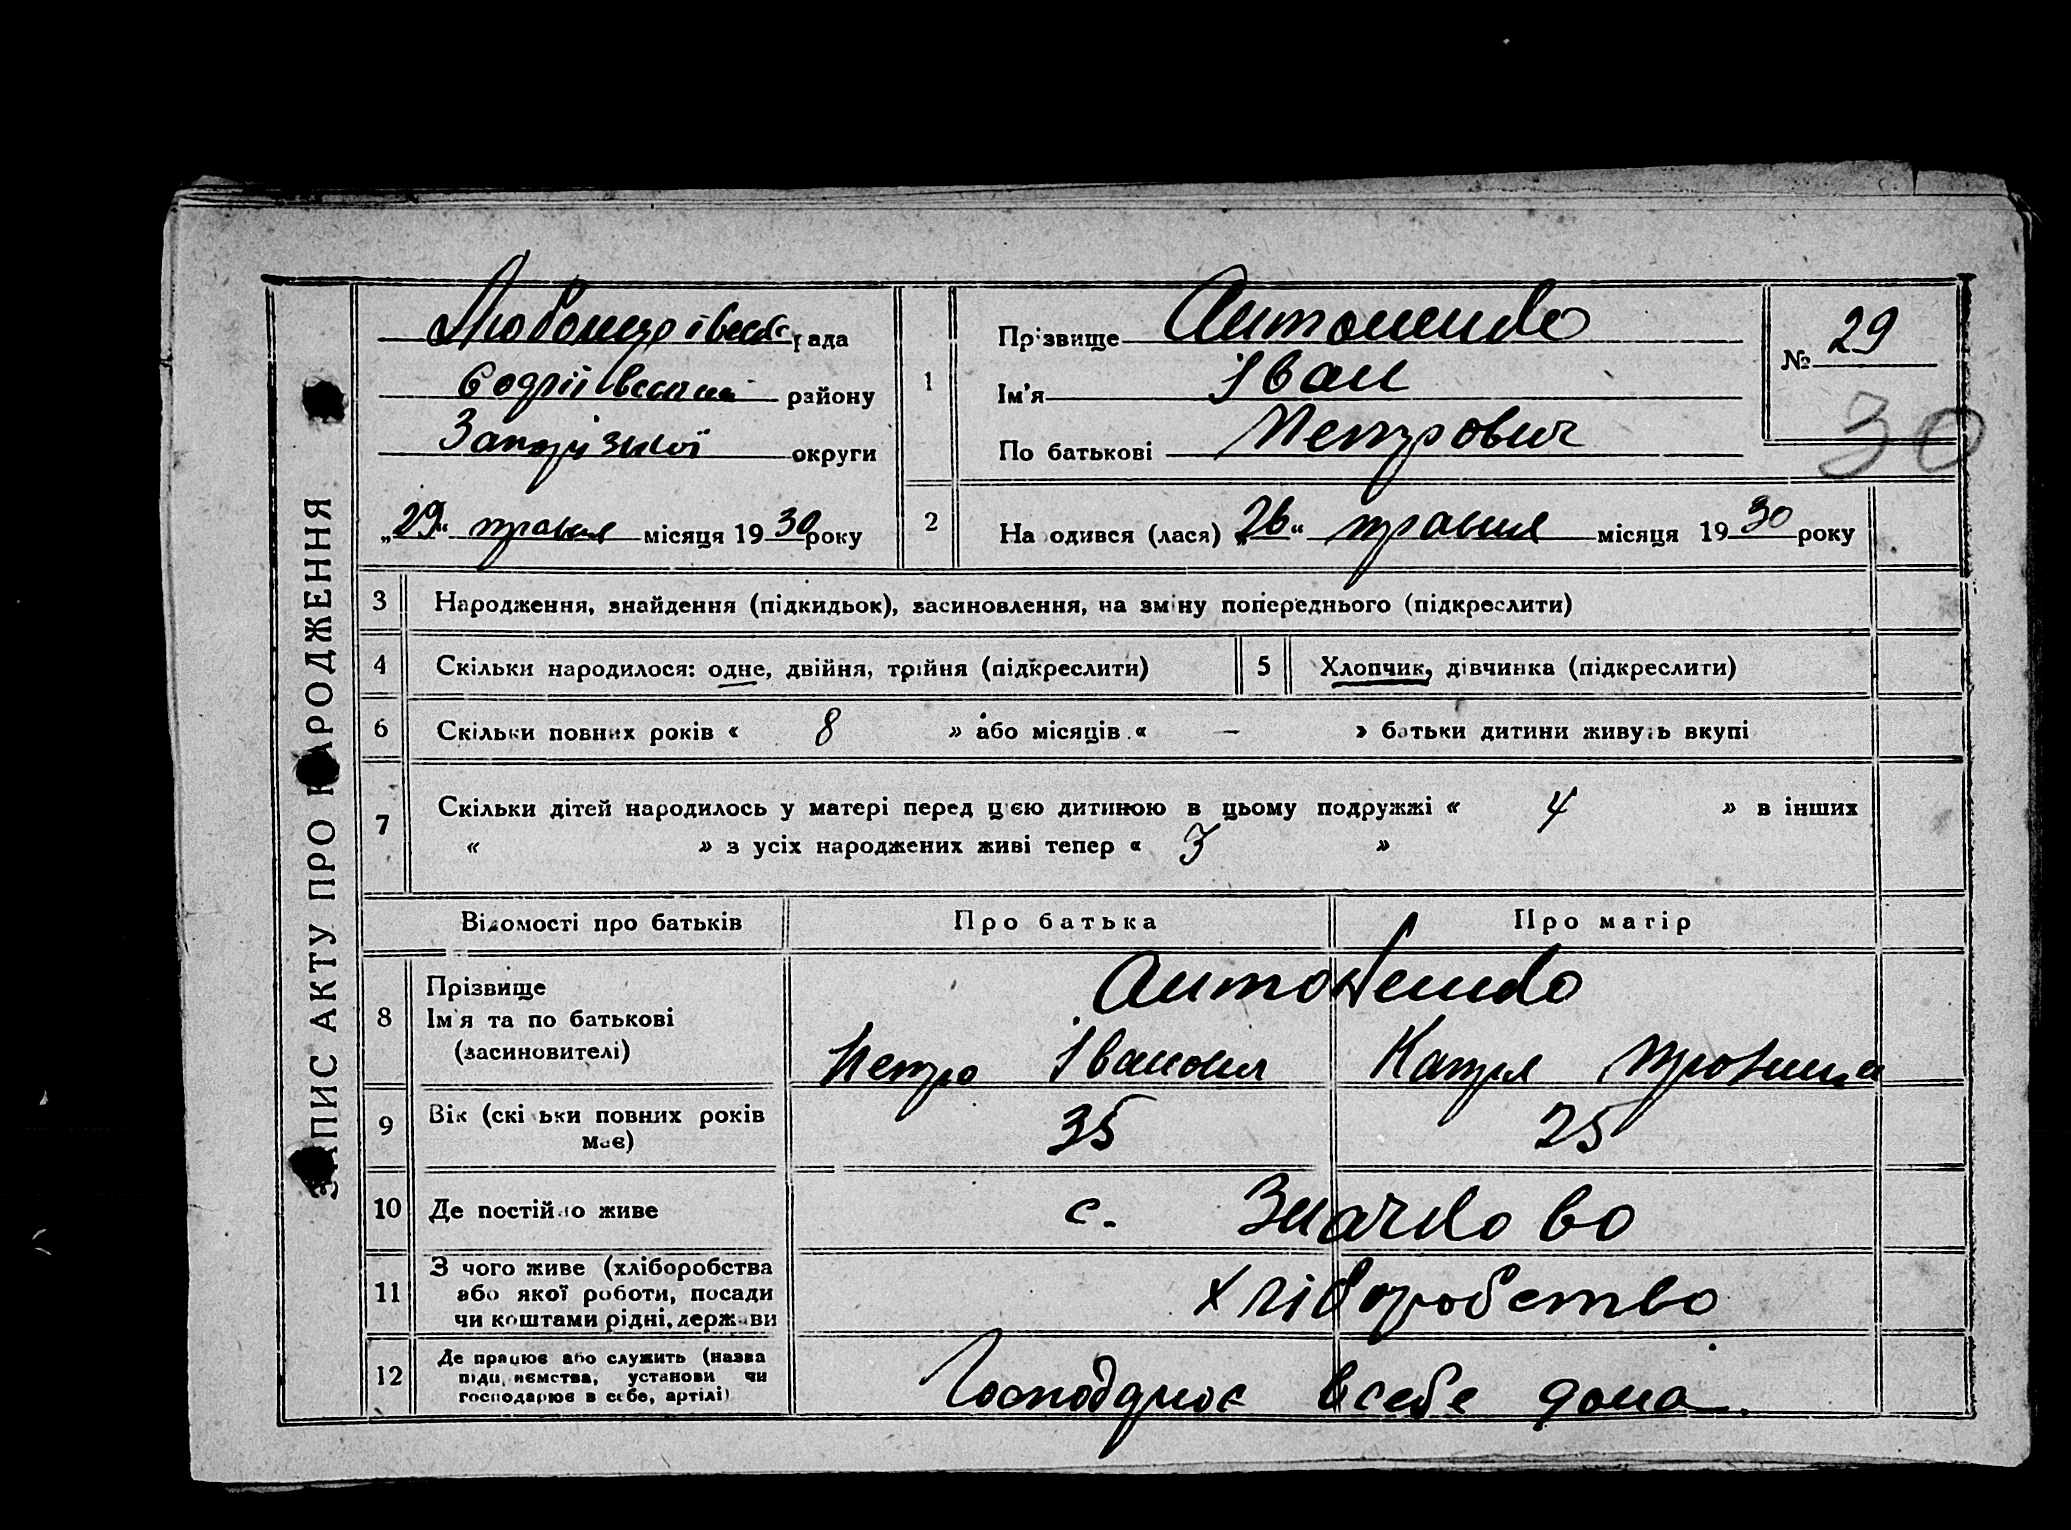 ЗАПИС АКТУ ПРО НАРОДЖЕННЯ
рада
району
округи
„29“ травня місяця 1930 року
1
Прізвище Антоненко
Ім'я Іван
По батькові Петрович
№ 29
30
2
Народився (лася) „26“ травня місяця 1930 року
3 Народження, знайдення (підкидьок), засиновлення, на зміну попереднього (підкреслити)
4 Скільки народилося: одне, двійня, трійня (підкреслити)
5 Хлопчик, дівчинка (підкреслити)
6 Скільки повних років « 8 » або місяців « – » батьки дитини живуть вкупі
7 Скільки дітей народилось у матері перед цією дитиною в цьому подружжі « 4 » в інших
« » з усіх народжених живі тепер « 3 »
Відомості про батьків
Про батька
Про матір
8
Прізвище
Ім'я та по батькові
(засиновителі)
Антоненко
Петро Іванович
Катря
9
Вік (скільки повних років
має)
35
25
10 Де постійно живе
с. Значково
11
З чого живе (хліборобства
або якої роботи, посади
чи коштами рідні, держави
хліборобство
12
Де працює або служить (назва
підприємства, установи чи
господарює в себе, артілі)
в себе дома.